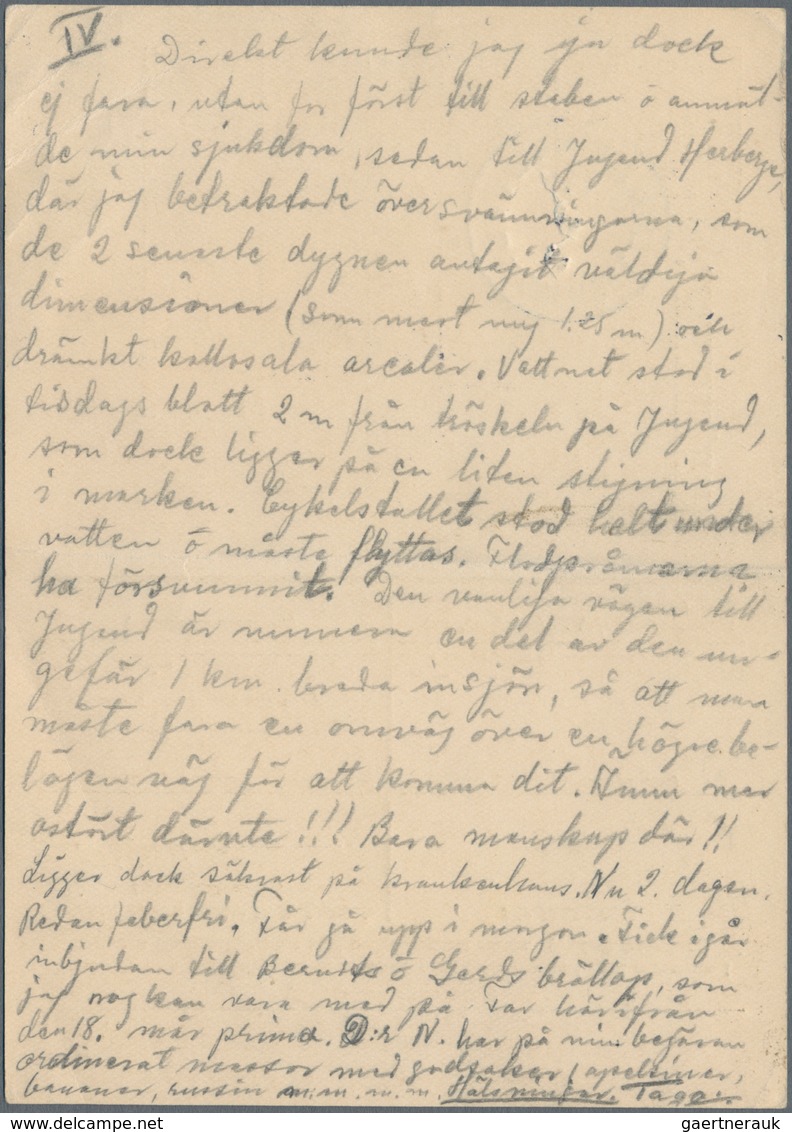 IV.
Direkt kunde jag ju dock
ej fara, utan for först till staben o anmäl-
de min sjukdom, sedan till Jugend Herberge,
där jag betraktade översvämningarna, som
de 2 senaste dygnen antagit väldiga
dimensioner (som mest nog 1.25 m) och
dränkt kollosala arealer. Vattnet stod i
tisdags blott 2 m från tröskeln på Jugend,
som dock ligger på en liten stigning
i marken. Cykelstallet stod helt under
vatten o måste flyttas. Flodpråmarna
ha försvunnit. Den vanliga vägen till
Jugend är numera en del av den un-
gefär 1 km. breda insjön, så att man
måste fara en omväg över en högre be-
lägen väg för att komma dit. Ännu mer
ostört därute!!! Bara manskap där!!
Ligger dock säkrast på Krankenhaus. Nu 2. dagen.
Redan feberfri. Får gå upp i morgon. Fick igår
inbjudan till Bernts o Gerds bröllop, som
jag nog kan vara med på. Far härifrån
den 18. mår prima. D:r N. har på min begäran
ordinerat massor med godsaker (apelsiner,
bananer, russin m.m. m.m. Hälsningar. Tage.
gaertnerauk